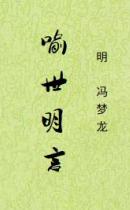 喻世明言
明 冯梦龙